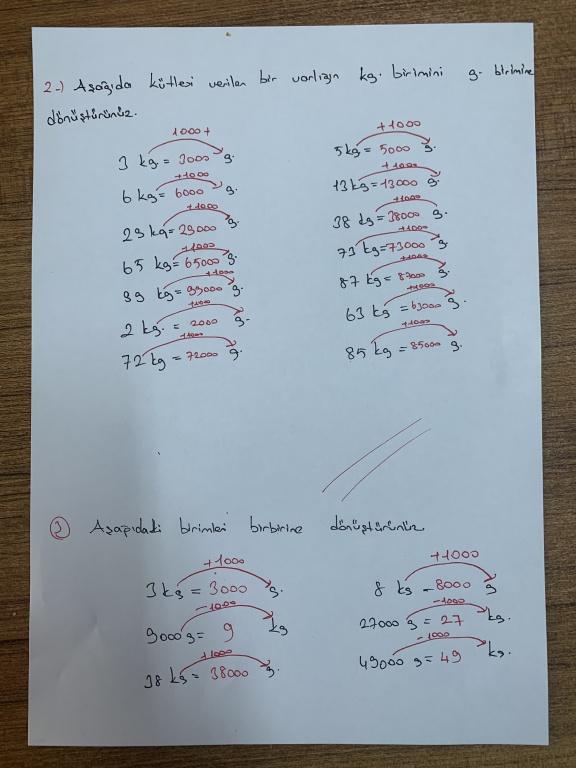 2-) Aşağıda kütlesi verilen bir varlığın kg. birimini g. birimine
dönüştürünüz.
1000+
3 kg. = 3000 g.
+1000
6 kg = 6000 g.
+1000
29 kg = 29000 g.
+1000
65 kg = 65000 g.
+1000
99 kg = 99000 g.
+1000
2 kg. = 2000 g.
+1000
72 kg = 72000 g.
+1000
5 kg = 5000 g.
+1000
13 kg = 13000 g.
+1000
38 kg = 38000 g.
+1000
73 kg = 73000 g.
+1000
87 kg = 87000 g.
+1000
63 kg = 63000 g.
+1000
85 kg = 85000 g.
3 Aşağıdaki birimleri birbirine dönüştürünüz
+1000
3 kg = 3000 g.
-1000
9000 g = 9 kg
+1000
38 kg = 38000 g.
+1000
8 kg - 8000 g
-1000
27000 g = 27 kg.
-1000
49000 g = 49 kg.